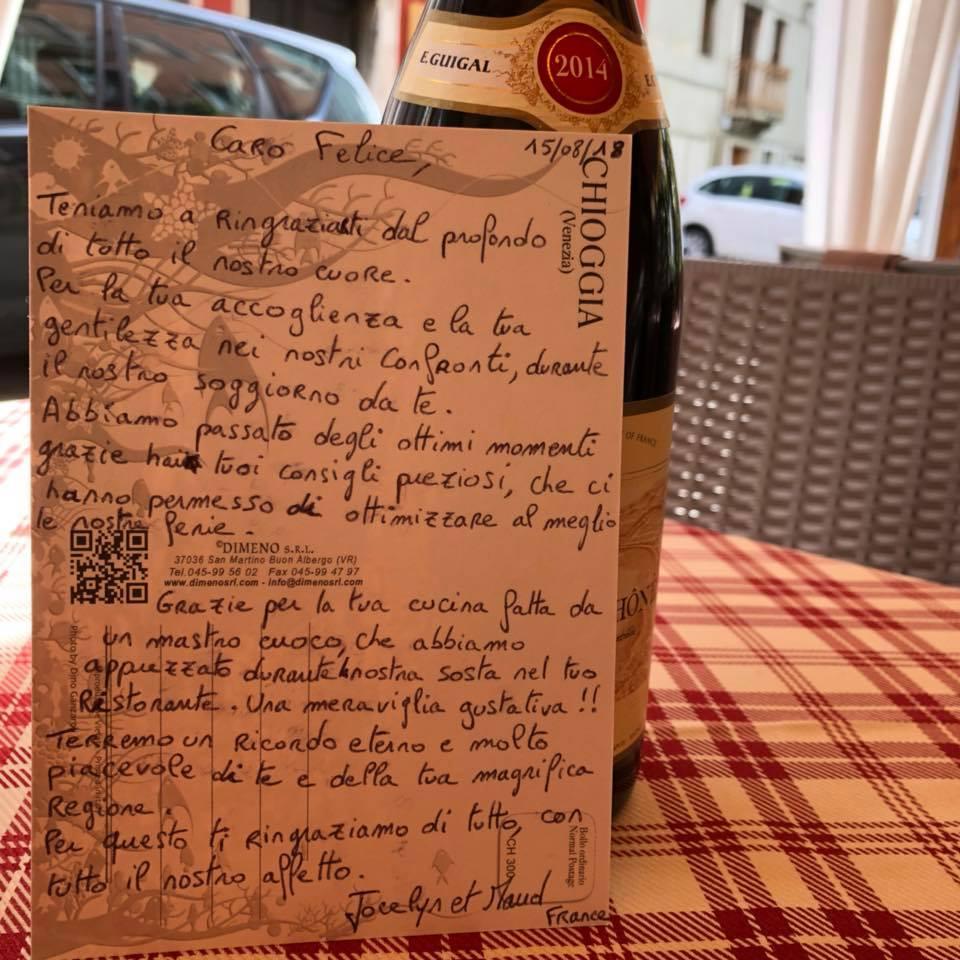 E.GUIGAL
2014
Caro Felice,
15/08/18
CHIOGGIA
(Venezia)
Teniamo a Ringraziarti dal profondo
di tutto il nostro cuore.
Per la tua accoglienza e la tua
gentilezza nei nostri confronti, durante
il nostro soggiorno da te.
Abbiamo passato degli ottimi momenti
grazie hai tuoi consigli preziosi, che ci
hanno permesso di ottimizzare al meglio
le nostre ferie.
©DIMENO S.R.L.
37036 San Martino Buon Albergo (VR)
Tel.045-99 56 02 Fax 045-99 47 97
www.dimenosrl.com - info@dimenosrl.com
Grazie per la tua cucina fatta da
un mastro cuoco, che abbiamo
apprezzato durante la nostra sosta nel tuo
Ristorante. Una meraviglia gustativa !!
Terremo un Ricordo eterno e molto
piacevole di te e della tua magnifica
Regione.
Per questo ti Ringraziamo di tutto, con
tutto il nostro affetto.
Jocelyn et Maud
France
Photo by Dino
CH 300
Bollo ordinario
Normal Postage
OF FRANCE